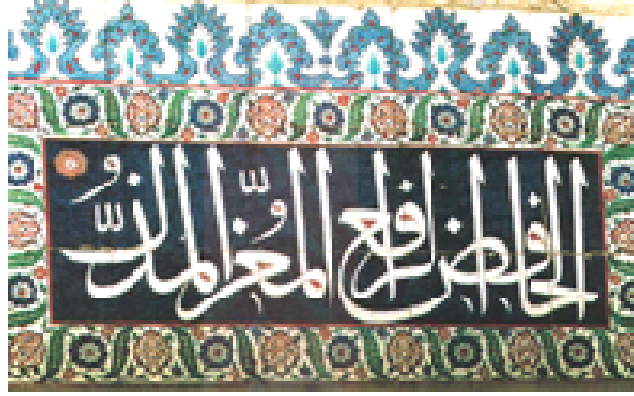 الخافض الرافع المعزّ المذلّ